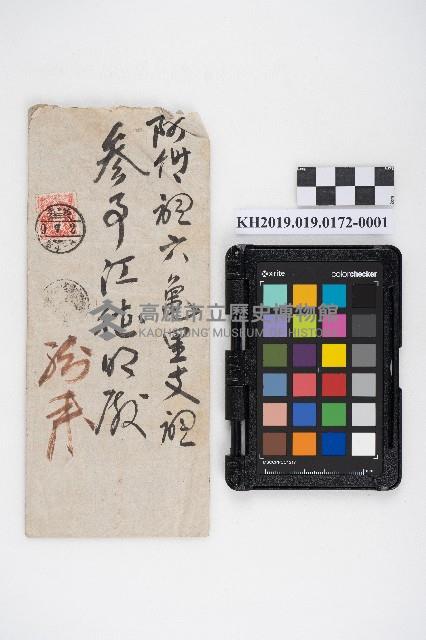 阿緱廳六龜里支廳
參事江明殿
高雄市立歷史博物館
KAOHSIUNG MUSEUM OF HISTORY
KH2019.019.0172-0001
x-rite
colorchecker